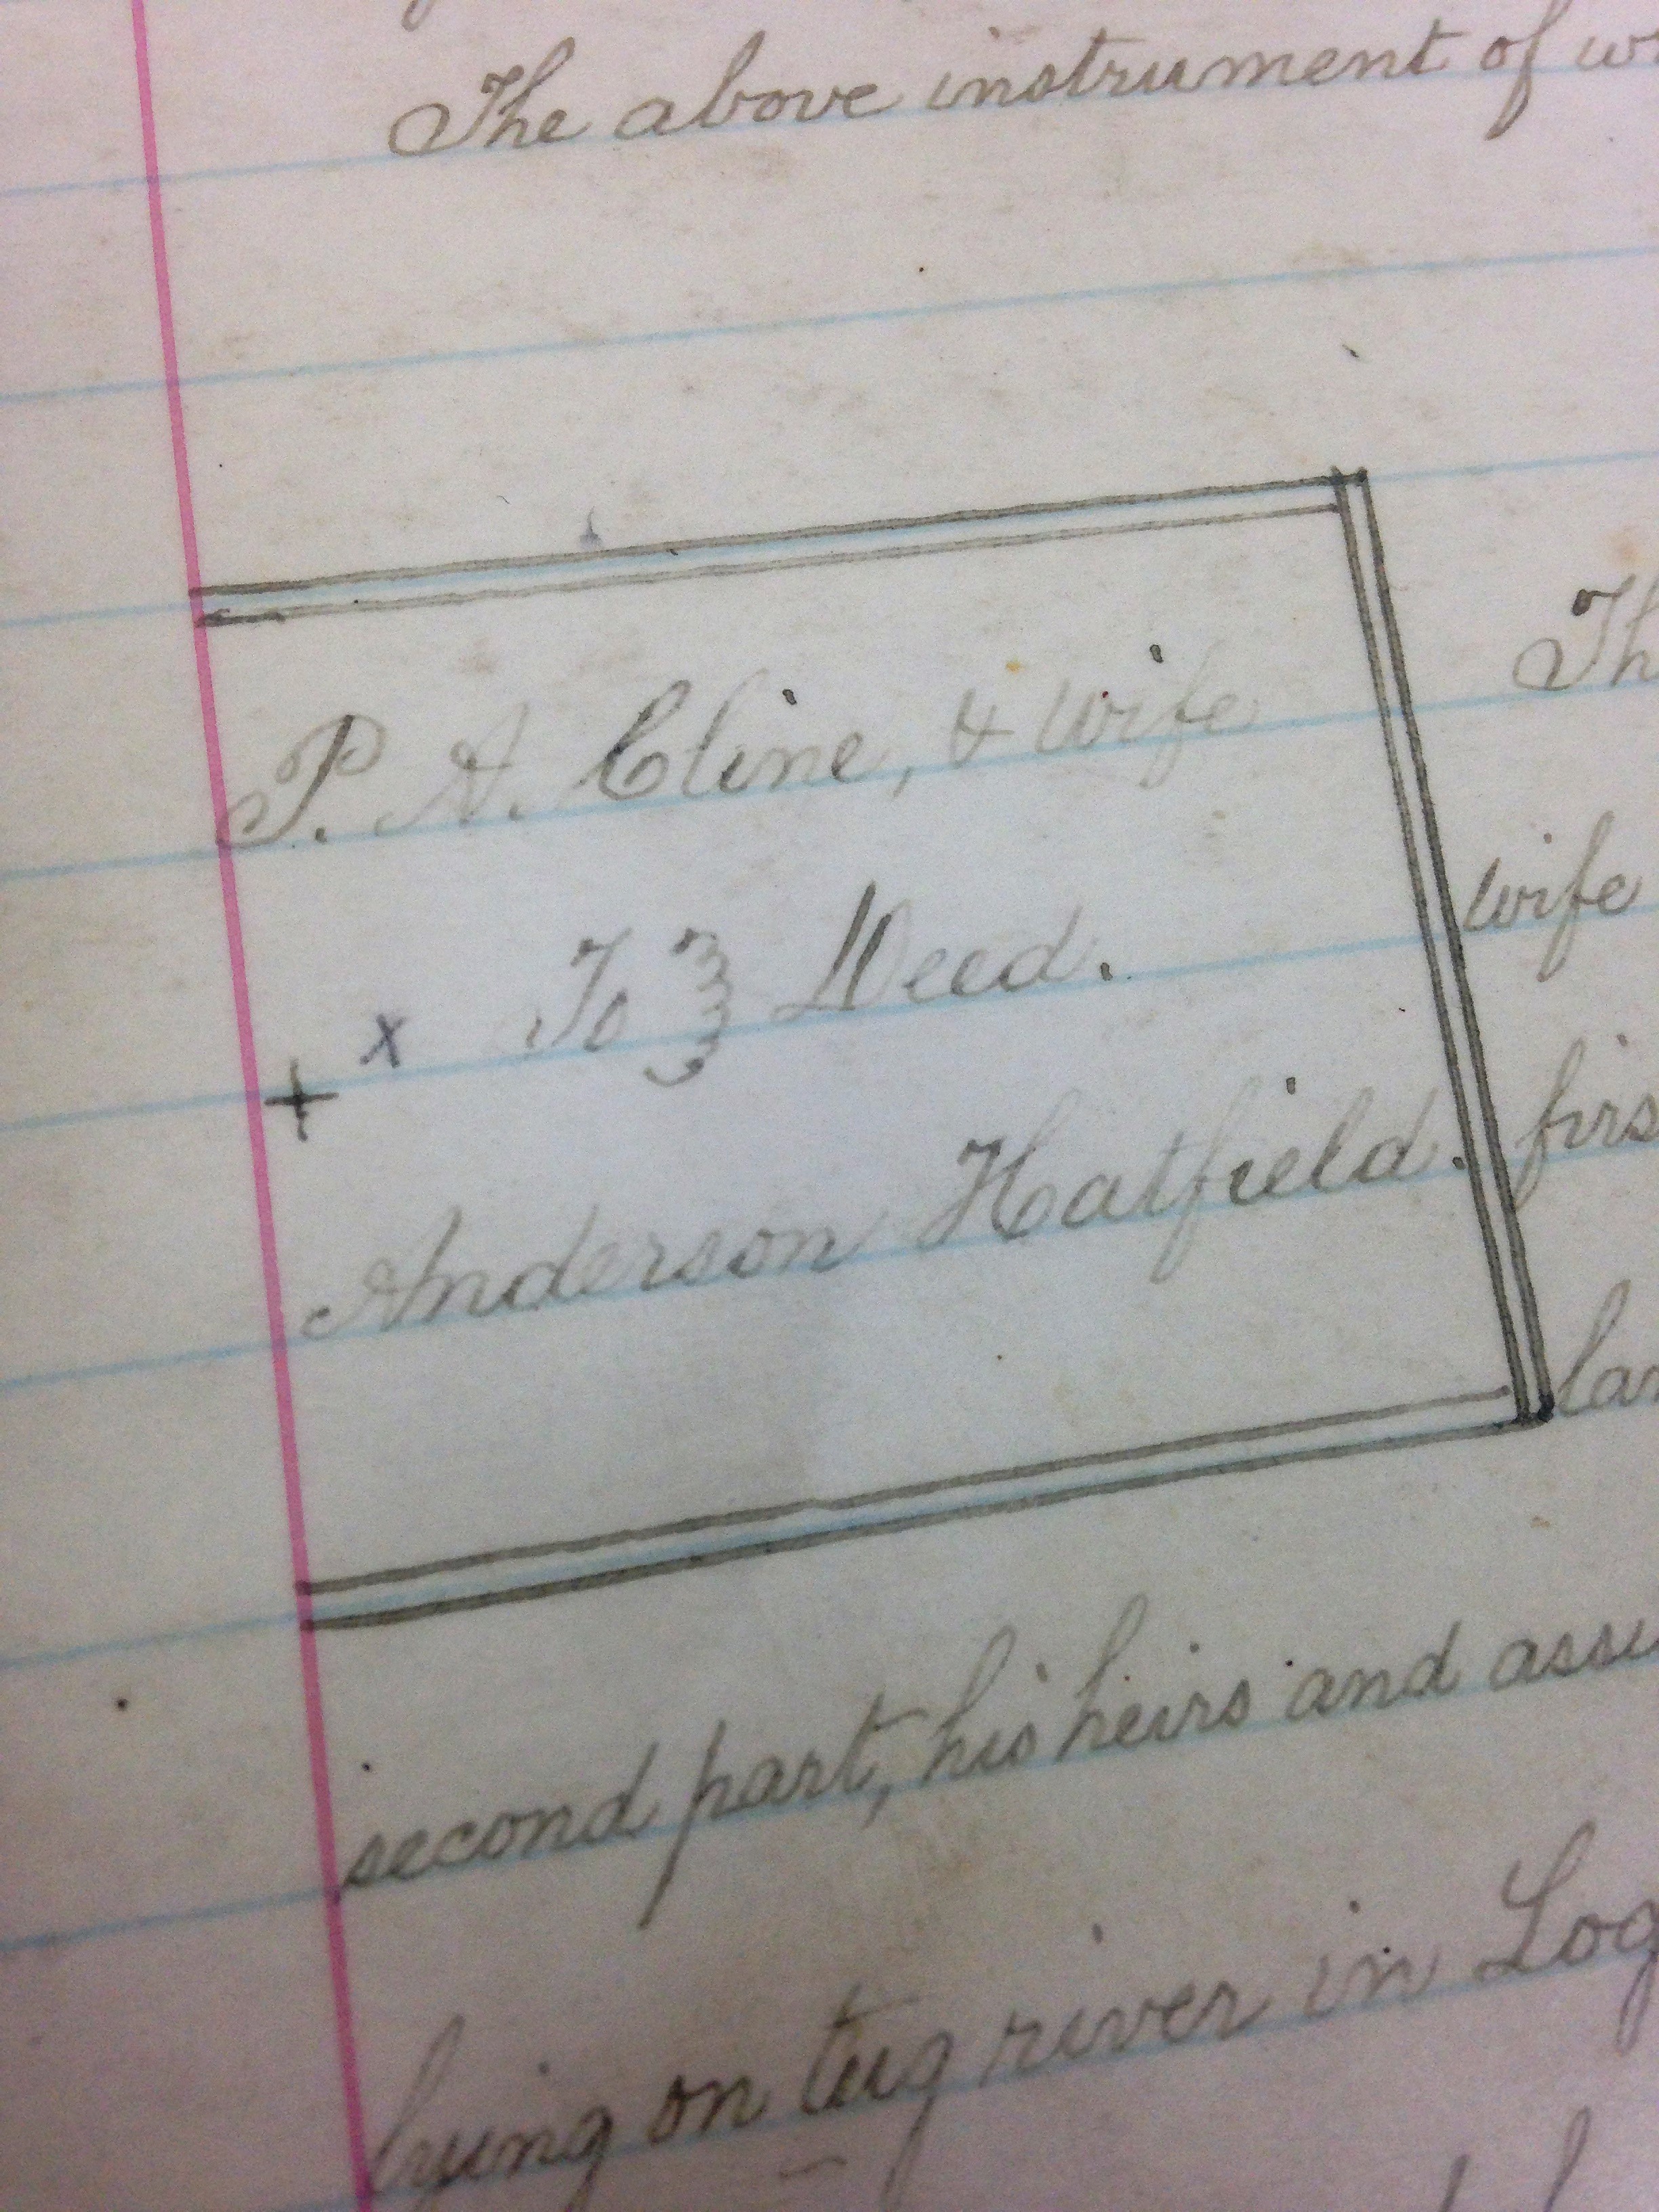 The above instrument of w
Th
P. A. Cline, & wife
wife
To } Deed.
x
+
firs
Anderson Hatfield.
lan
second part, his heirs and assi
lying on tug river in Log